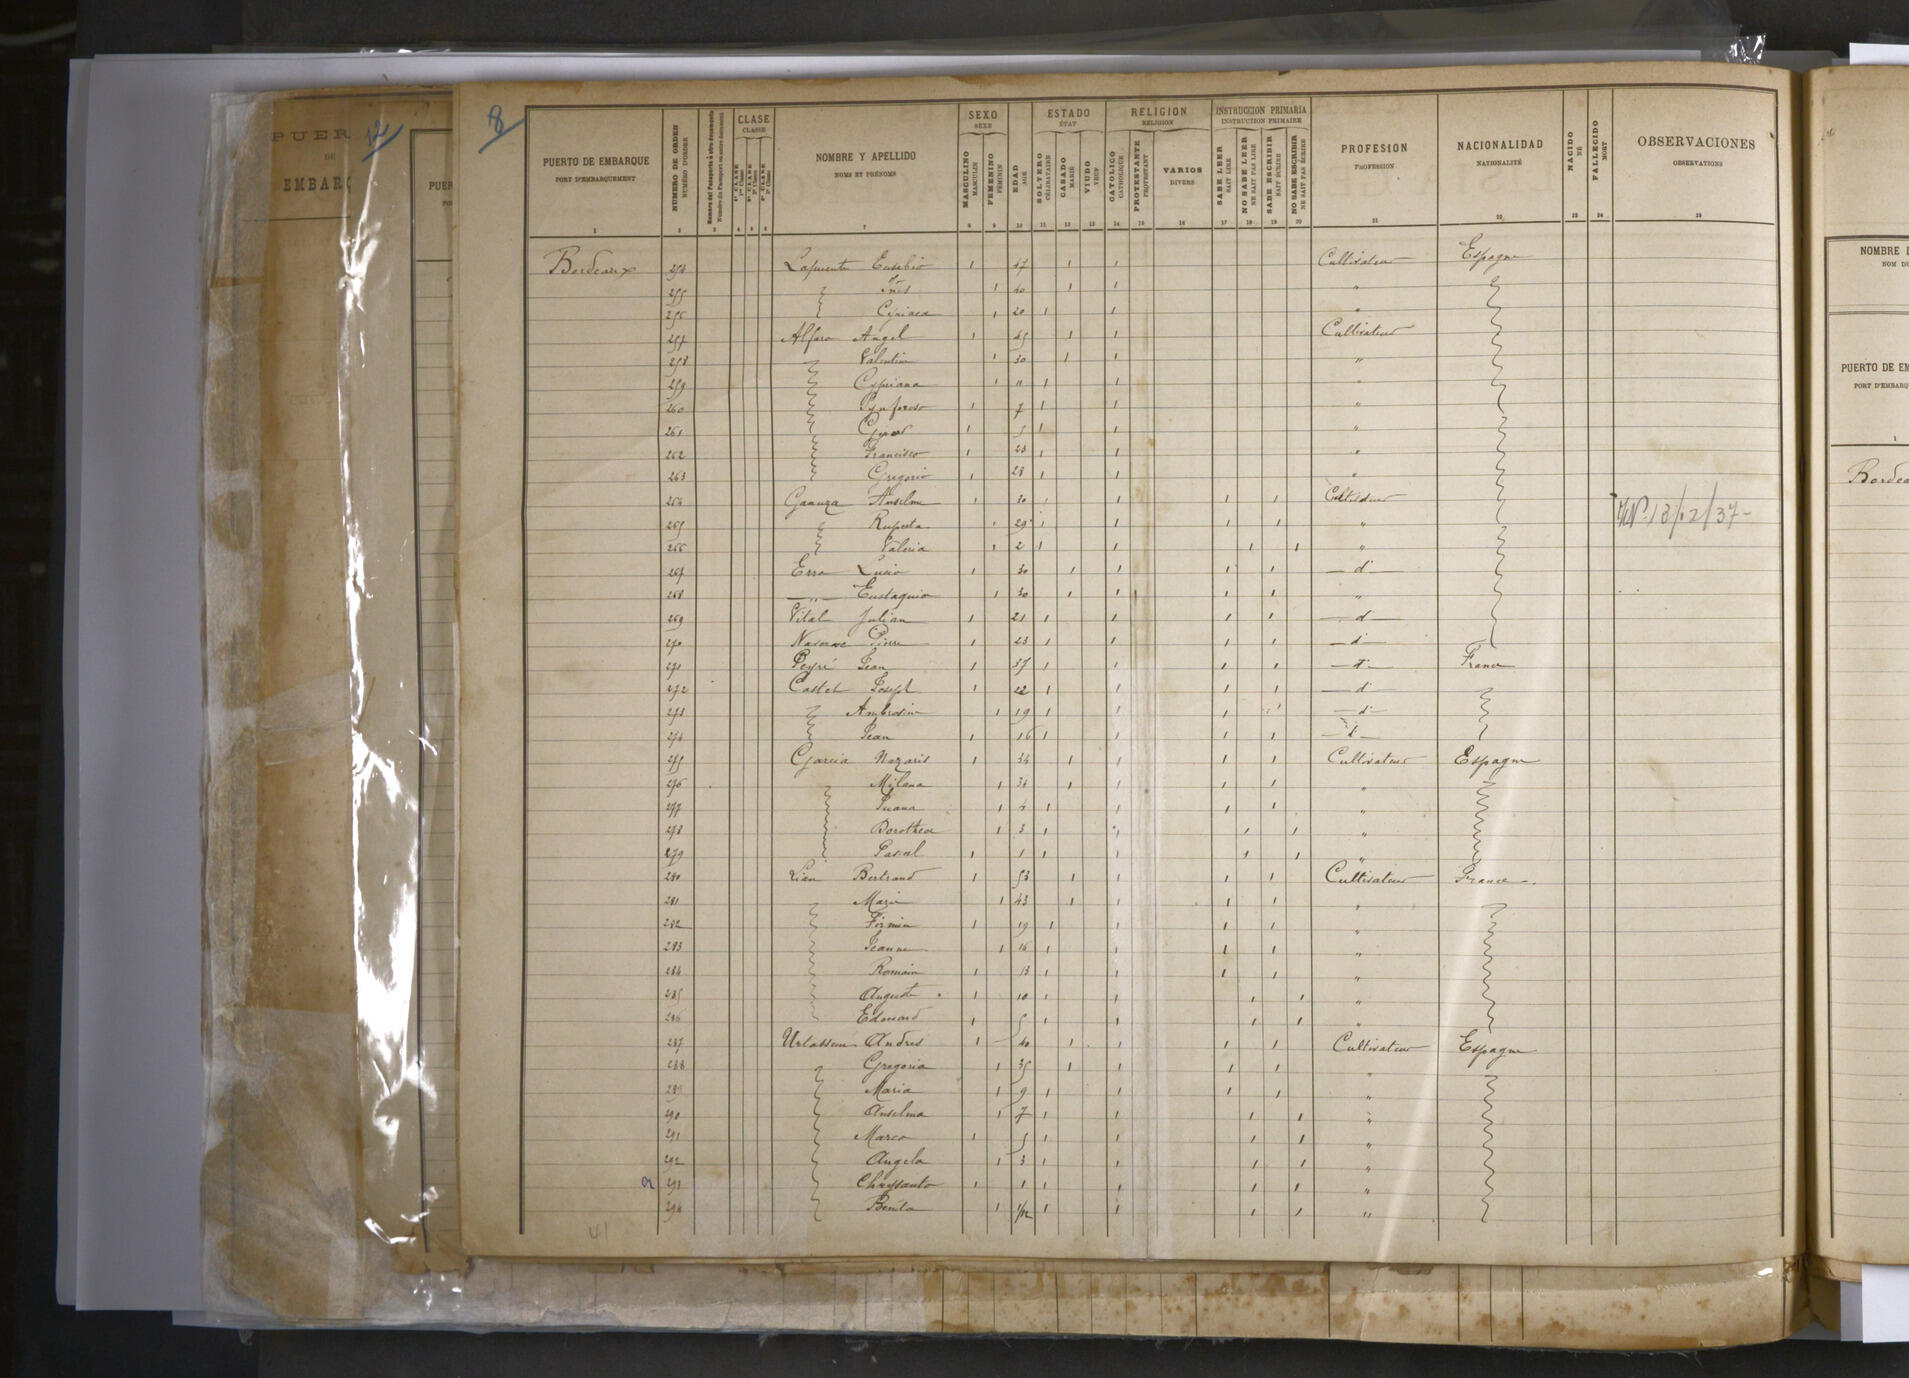 PUER
DE
EMBARQ
12
PUER
8
PUERTO DE EMBARQUE
PORT D'EMBARQUEMENT
NUMERO DE ORDEN
NUMÉRO D'ORDRE
CLASE
CLASSE
1ª CLASE
2ª CLASE
3ª CLASE
NOMBRE Y APELLIDO
NOMS ET PRÉNOMS
SEXO
SEXE
MASCULINO
MASCULIN
FEMENINO
FÉMININ
EDAD
AGE
ESTADO
ÉTAT
SOLTERO
CÉLIBATAIRE
CASADO
MARIÉ
VIUDO
VEUF
RELIGION
RELIGION
CATOLICO
CATHOLIQUE
PROTESTANTE
PROTESTANT
VARIOS
DIVERS
INSTRUCCION PRIMARIA
INSTRUCTION PRIMAIRE
SABE LEER
SAIT LIRE
NO SABE LEER
NE SAIT PAS LIRE
SABE ESCRIBIR
SAIT ÉCRIRE
NO SABE ESCRIBIR
NE SAIT PAS ÉCRIRE
PROFESION
PROFESSION
NACIONALIDAD
NATIONALITÉ
NACIDO
NÉ
FALLECIDO
MORT
OBSERVACIONES
OBSERVATIONS
1 2 3 4 5 6 7 8 9 10 11 12 13 14 15 16 17 18 19 20 21 22 23 24 25
Bordeaux 254 Lafuente Eusebio 1 47 1 1 Cultivateur Espagne
255 Inès 1 40 1 1 "
256 Ciriaca 1 20 1 1 "
257 Alfaro Angel 1 45 1 1 Cultivateur
258 Valentina 1 30 1 1 "
259 Cypriana 1 11 1 1 "
260 Synforoso 1 7 1 1 "
261 1 5 1 1 "
262 Francisco 1 23 1 1 "
263 Gregorio 1 28 1 1 "
264 Ganuza Anselmo 1 30 1 1 1 1 Cultivateur
265 Ruperta 1 29 1 1 1 1 "
266 Valeria 1 2 1 1 1 1 "
267 Erro Lucio 1 30 1 1 1 1 d°
268 " Eustaquia 1 30 1 1 1 1 "
269 Vital Julian 1 21 1 1 1 1 d°
270 Navarre Pierre 1 23 1 1 1 1 d°
271 Peyré Jean 1 37 1 1 1 1 d° France
272 Castet Joseph 1 22 1 1 1 1 d°
273 Ambrosine 1 19 1 1 1 1 d°
274 Jean 1 16 1 1 1 1 d°
275 Garcia Nazaris 1 34 1 1 1 1 Cultivateur Espagne
276 Milana 1 34 1 1 1 1 "
277 Juana 1 4 1 1 1 1 "
278 Dorothea 1 3 1 1 1 1 "
279 Pascal 1 1 1 1 1 1 "
280 Lian Bertrand 1 53 1 1 1 1 Cultivateur France
281 Marie 1 43 1 1 1 1 "
282 Firmin 1 19 1 1 1 1 "
283 Jeanne 1 16 1 1 1 1 "
284 Romain 1 13 1 1 1 1 "
285 Auguste 1 10 1 1 1 1 "
286 Edouard 1 5 1 1 1 1 "
287 Urlassun Andres 1 40 1 1 1 1 Cultivateur Espagne
288 Gregoria 1 35 1 1 1 1 "
289 Maria 1 9 1 1 1 1 "
290 Anselma 1 7 1 1 1 1 "
291 Marco 1 5 1 1 1 1 "
292 Angela 1 3 1 1 1 1 "
293 Chrysanto 1 1 1 1 1 1 "
294 Benita 1 1/12 1 1 1 1 "
41
NOMBRE D
NOM DU
PUERTO DE EM
PORT D'EMBARQ
1
Bordea